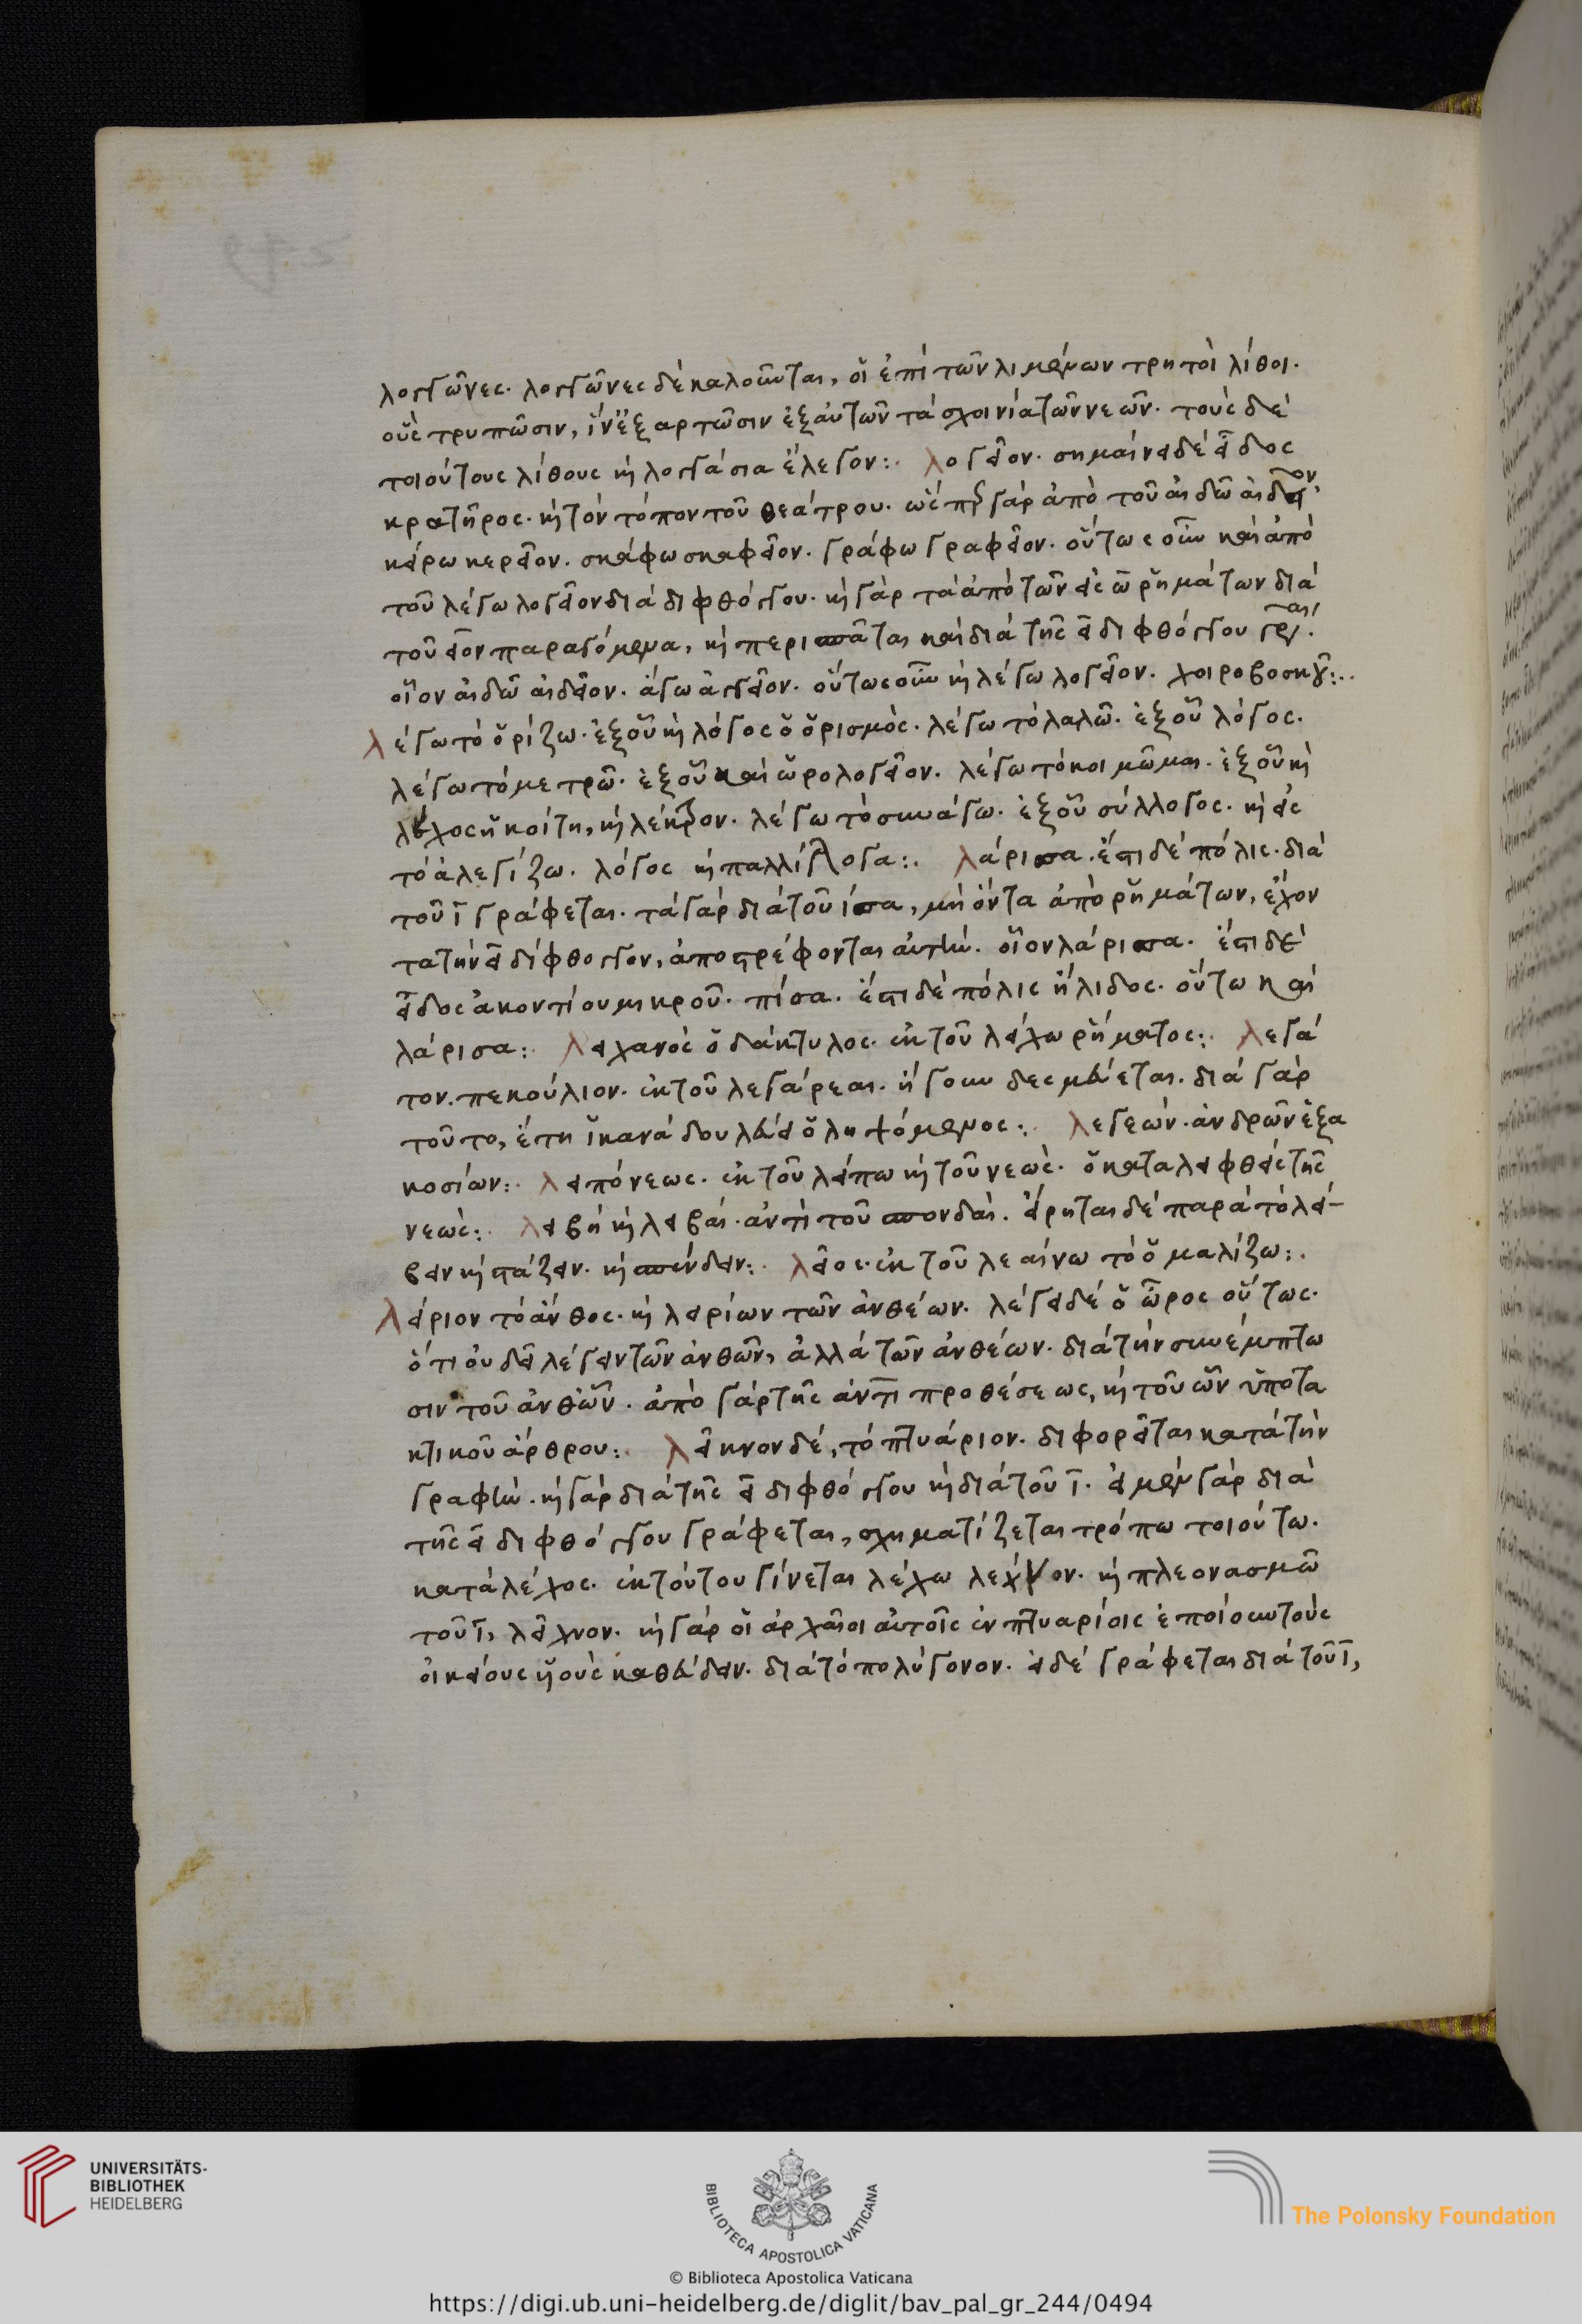 λογγῶνες· λογγῶνες δὲ καλοῦνται, οἱ ἐπὶ τῶν λιμένων τρητοὶ λίθοι·
οὓς τρυπῶσιν, ἵν' ἐξαρτῶσιν ἐξ αὐτῶν τὰ σχοινία τῶν νεῶν· τοὺς δὲ
τοιούτους λίθους κ λογγάσια ἔλεγον: λογεῖον· σημαίνει δὲ εἶδος
κρατῆρος· κ τὸν τόπον τοῦ θεάτρου· ὥσπερ γὰρ ἀπὸ τοῦ αἰδῶ αἰδεῖον·
κείρω κερεῖον· σκάφω σκαφεῖον· γράφω γραφεῖον· οὕτως οὖν καὶ ἀπὸ
τοῦ λέγω λογεῖον διὰ διφθόγγου· κ γὰρ τὰ ἀπὸ τῶν εἰς ω ῥημάτων διὰ
τοῦ εῖον παραγόμενα, κ περισπᾶται καὶ διὰ τῆς ει διφθόγγου γραι·
οἷον αἰδῶ αἰδεῖον· ἄγω ἀγγεῖον· οὕτως οὖν κ λέγω λογεῖον· χοιροβοσκγ:
λέγω τὸ ὁρίζω· ἐξ οὗ κ λόγος ὁ ὁρισμός· λέγω τὸ λαλῶ· ἐξ οὗ λόγος·
λέγω τὸ μετρῶ· ἐξ οὗ καὶ ὡρολογεῖον· λέγω τὸ κοιμῶμαι· ἐξ οὗ κ
λέχος ἡ κοίτη, κ λέκτρον· λέγω τὸ συνάγω· ἐξ οὗ σύλλογος· κ εἰς
τὸ ἀλεγίζω· λόγος κ παλλίλογα: λάρισσα· ἔστι δὲ πόλις· διὰ
τοῦ ι γράφεται· τὰ γὰρ διὰ τοῦ ίσσα, μὴ ὄντα ἀπὸ ῥημάτων, ἔχον
τα τὴν ει δίφθογγον, ἀποστρέφονται αὐτήν· οἷον λάρισσα· ἔστι δὲ
εἶδος ἀκοντίου μικροῦ· πίσα· ἔστι δὲ πόλις ἤλιδος· οὕτω καὶ
λάρισα: λειχανὸς ὁ δάκτυλος· ἐκ τοῦ λείχω ῥήματος: λεγά
τον· πεκούλιον· ἐκ τοῦ λεγάρεαι· ἤγουν δεσμεύεται· διὰ γὰρ
τοῦτο, ἔτη ἱκανὰ δουλεύει ὁ ληψόμενος: λεγεών· ἀνδρῶν ἑξα
κοσίων: λειπόνεως· ἐκ τοῦ λείπω κ τοῦ νεώς· ὁ καταλειφθεὶς τῆς
νεώς: λειβὴ κ λειβαί· ἀντὶ τοῦ σπονδαί· εἴρηται δὲ παρὰ τὸ λεί-
βειν κ στάζειν· κ σπένδειν: λεῖος· ἐκ τοῦ λεαίνω τὸ ὁμαλίζω:
λείριον τὸ ἄνθος· κ λειρίων τῶν ἀνθέων· λέγει δὲ ὁ ὦρος οὕτως·
ὅτι οὐ δεῖ λέγειν τῶν ἀνθῶν, ἀλλὰ τῶν ἀνθέων· διὰ τὴν συνέμπτω
σιν τοῦ ἀνθῶν· ἀπὸ γὰρ τῆς ἀντὶ προθέσεως, κ τοῦ ὧν ὑποτα
κτικοῦ ἄρθρου: λεῖκνον δὲ, τὸ πτυάριον· διφορεῖται κατὰ τὴν
γραφήν· κ γὰρ διὰ τῆς ει διφθόγγου κ διὰ τοῦ ι· εἰ μὲν γὰρ διὰ
τῆς ει διφθόγγου γράφεται, σχηματίζεται τρόπω τοιούτω·
κατὰ λέχος· ἐκ τούτου γίνεται λέχω λέχνον· κ πλεονασμῶ
τοῦ ι, λεῖχνον· κ γὰρ οἱ ἀρχαῖοι αὐτοῖς ἐν πτυαρίοις ἐποίουν τοὺς
οἰκείους υἱοὺς καθεύδειν· διὰ τὸ πολύγονον· εἰ δὲ γράφεται διὰ τοῦ ι,
UNIVERSITÄTS-
BIBLIOTHEK
HEIDELBERG
BIBLIOTECA APOSTOLICA VATICANA
The Polonsky Foundation
© Biblioteca Apostolica Vaticana
https://digi.ub.uni-heidelberg.de/diglit/bav_pal_gr_244/0494